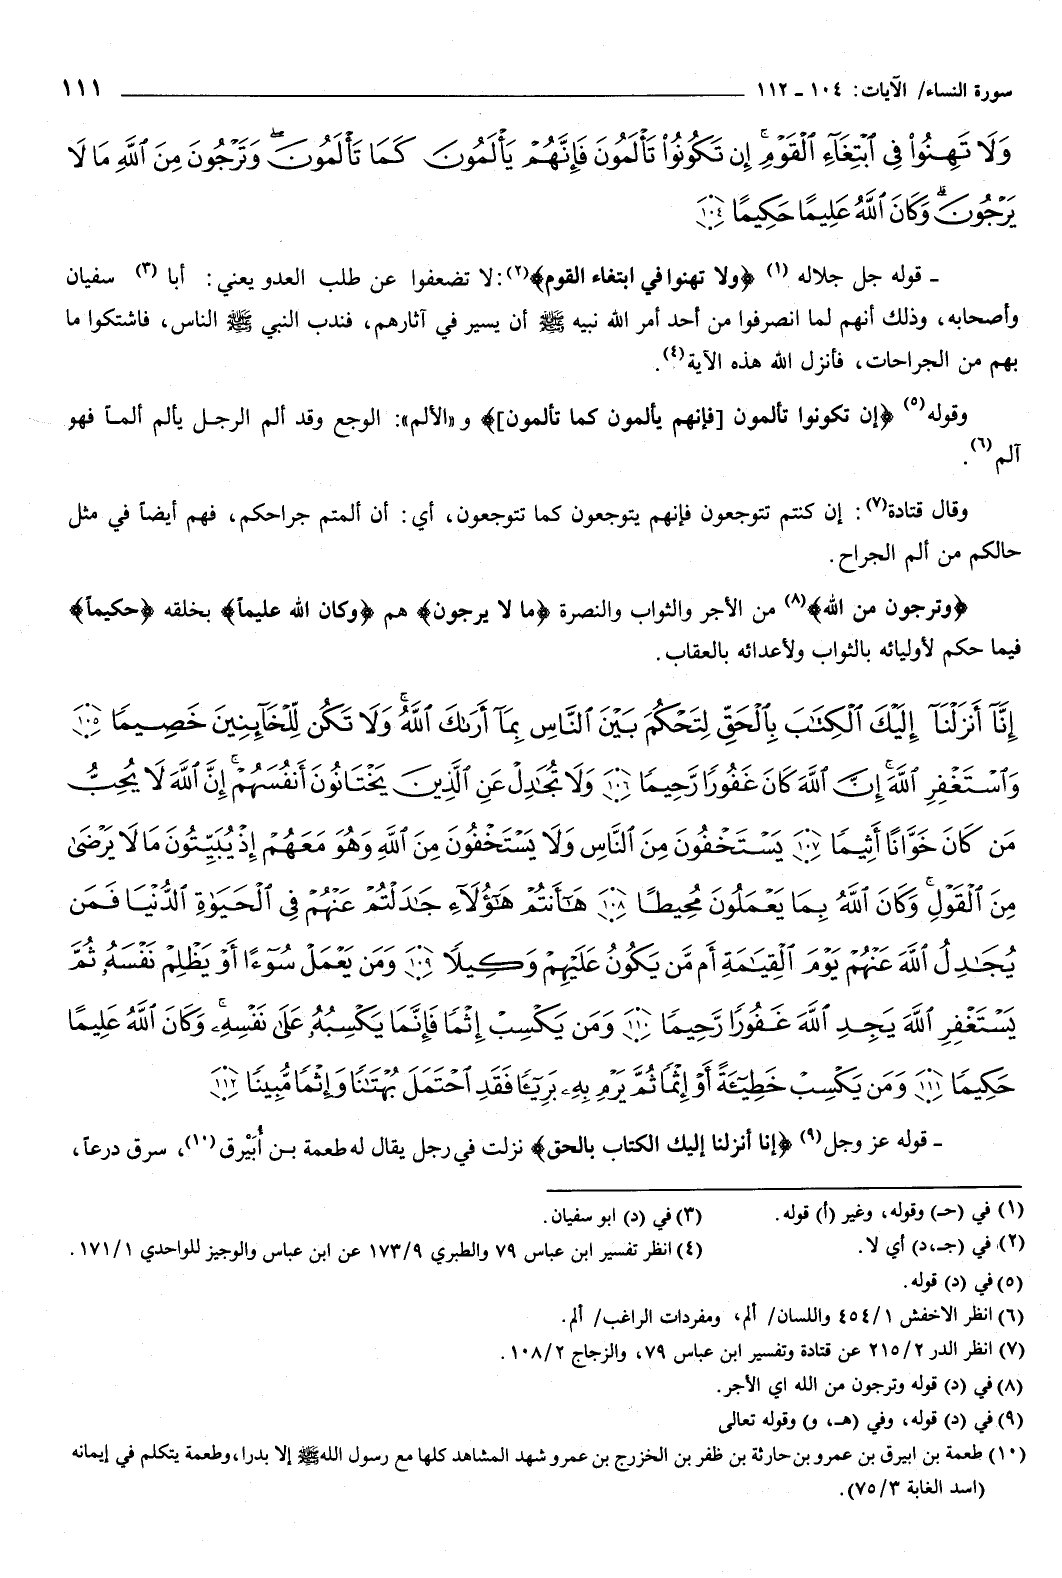 سورة النساء/ الآيات: ١٠٤ ـ ١١٢ ١١١
وَلَا تَهِنُوا۟ فِى ٱبْتِغَآءِ ٱلْقَوْمِ ۖ إِن تَكُونُوا۟ تَأْلَمُونَ فَإِنَّهُمْ يَأْلَمُونَ كَمَا تَأْلَمُونَ ۖ وَتَرْجُونَ مِنَ ٱللَّهِ مَا لَا
يَرْجُونَ ۗ وَكَانَ ٱللَّهُ عَلِيمًا حَكِيمًا ١٠٤
ـ قوله جل جلاله (١) ﴿ولا تهنوا في ابتغاء القوم﴾(٢): لا تضعفوا عن طلب العدو يعني: أبا (٣) سفيان
وأصحابه، وذلك أنهم لما انصرفوا من أحد أمر الله نبيه ﷺ أن يسير في آثارهم، فندب النبي ﷺ الناس، فاشتكوا ما
بهم من الجراحات، فأنزل الله هذه الآية(٤).
وقوله(٥) ﴿إن تكونوا تألمون [فإنهم يألمون كما تألمون]﴾ و«الألم»: الوجع وقد ألم الرجل يألم ألماً فهو
آلم(٦).
وقال قتادة(٧): إن كنتم تتوجعون فإنهم يتوجعون كما تتوجعون، أي: أن ألمتم جراحكم، فهم أيضاً في مثل
حالكم من ألم الجراح.
﴿وترجون من الله﴾(٨) من الأجر والثواب والنصرة ﴿ما لا يرجون﴾ هم ﴿وكان الله عليماً﴾ بخلقه ﴿حكيماً﴾
فيما حكم لأوليائه بالثواب ولأعدائه بالعقاب.
إِنَّآ أَنزَلْنَآ إِلَيْكَ ٱلْكِتَٰبَ بِٱلْحَقِّ لِتَحْكُمَ بَيْنَ ٱلنَّاسِ بِمَآ أَرَىٰكَ ٱللَّهُ ۚ وَلَا تَكُن لِّلْخَآئِنِينَ خَصِيمًا ١٠٥
وَٱسْتَغْفِرِ ٱللَّهَ ۖ إِنَّ ٱللَّهَ كَانَ غَفُورًا رَّحِيمًا ١٠٦ وَلَا تُجَٰدِلْ عَنِ ٱلَّذِينَ يَخْتَانُونَ أَنفُسَهُمْ ۚ إِنَّ ٱللَّهَ لَا يُحِبُّ
مَن كَانَ خَوَّانًا أَثِيمًا ١٠٧ يَسْتَخْفُونَ مِنَ ٱلنَّاسِ وَلَا يَسْتَخْفُونَ مِنَ ٱللَّهِ وَهُوَ مَعَهُمْ إِذْ يُبَيِّتُونَ مَا لَا يَرْضَىٰ
مِنَ ٱلْقَوْلِ ۚ وَكَانَ ٱللَّهُ بِمَا يَعْمَلُونَ مُحِيطًا ١٠٨ هَٰٓأَنتُمْ هَٰٓؤُلَآءِ جَٰدَلْتُمْ عَنْهُمْ فِى ٱلْحَيَوٰةِ ٱلدُّنْيَا فَمَن
يُجَٰدِلُ ٱللَّهَ عَنْهُمْ يَوْمَ ٱلْقِيَٰمَةِ أَم مَّن يَكُونُ عَلَيْهِمْ وَكِيلًا ١٠٩ وَمَن يَعْمَلْ سُوٓءًا أَوْ يَظْلِمْ نَفْسَهُۥ ثُمَّ
يَسْتَغْفِرِ ٱللَّهَ يَجِدِ ٱللَّهَ غَفُورًا رَّحِيمًا ١١٠ وَمَن يَكْسِبْ إِثْمًا فَإِنَّمَا يَكْسِبُهُۥ عَلَىٰ نَفْسِهِۦ ۚ وَكَانَ ٱللَّهُ عَلِيمًا
حَكِيمًا ١١١ وَمَن يَكْسِبْ خَطِيٓـَٔةً أَوْ إِثْمًا ثُمَّ يَرْمِ بِهِۦ بَرِيٓـًٔا فَقَدِ ٱحْتَمَلَ بُهْتَٰنًا وَإِثْمًا مُّبِينًا ١١٢
ـ قوله عز وجل(٩) ﴿إنا أنزلنا إليك الكتاب بالحق﴾ نزلت في رجل يقال له طعمة بن أُبَيْرق(١٠)، سرق درعاً،
(١) في (حـ) وقوله، وغير (أ) قوله.
(٢) في (جـ،د) أي لا.
(٣) في (د) ابو سفيان.
(٤) انظر تفسير ابن عباس ٧٩ والطبري ١٧٣/٩ عن ابن عباس والوجيز للواحدي ١٧١/١.
(٥) في (د) قوله.
(٦) انظر الاخفش ٤٥٤/١ واللسان/ ألم، ومفردات الراغب/ ألم.
(٧) انظر الدر ٢١٥/٢ عن قتادة وتفسير ابن عباس ٧٩، والزجاج ١٠٨/٢.
(٨) في (د) قوله وترجون من الله اي الأجر.
(٩) في (د) قوله، وفي (هـ، و) وقوله تعالى
(١٠) طعمة بن ابيرق بن عمرو بن حارثة بن ظفر بن الخزرج بن عمرو شهد المشاهد كلها مع رسول الله ﷺ إلا بدرا، وطعمة يتكلم في إيمانه
(اسد الغابة ٧٥/٣).